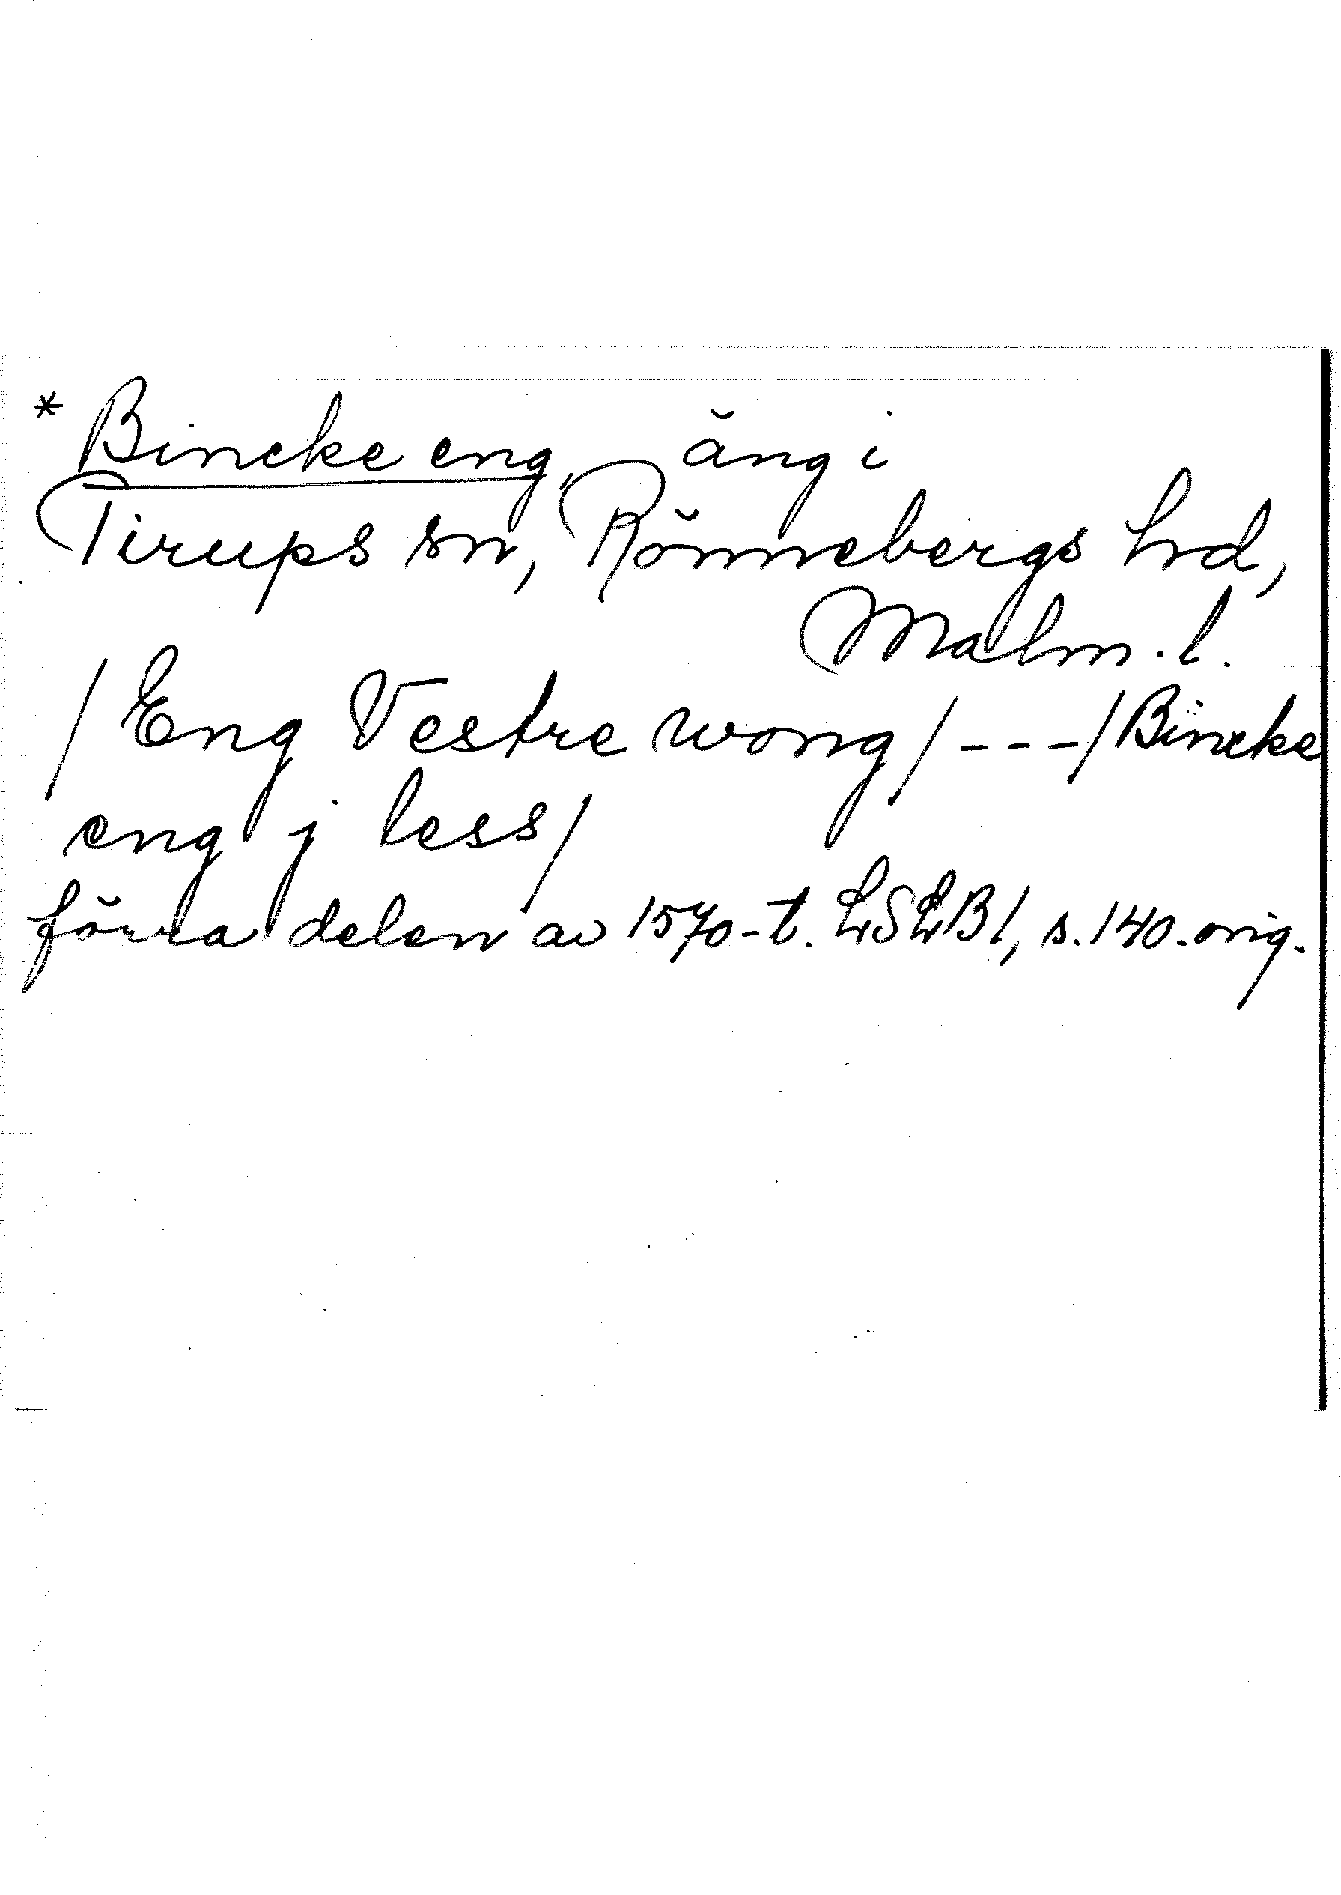 * Bincke eng, äng i
Tirups sn, Rönnebergs hrd,
Malm. l.
/Eng Vestre wong/ - - - /Bincke
eng j less/
förra delen av 1570-t. LSLB 1, s. 140. orig.